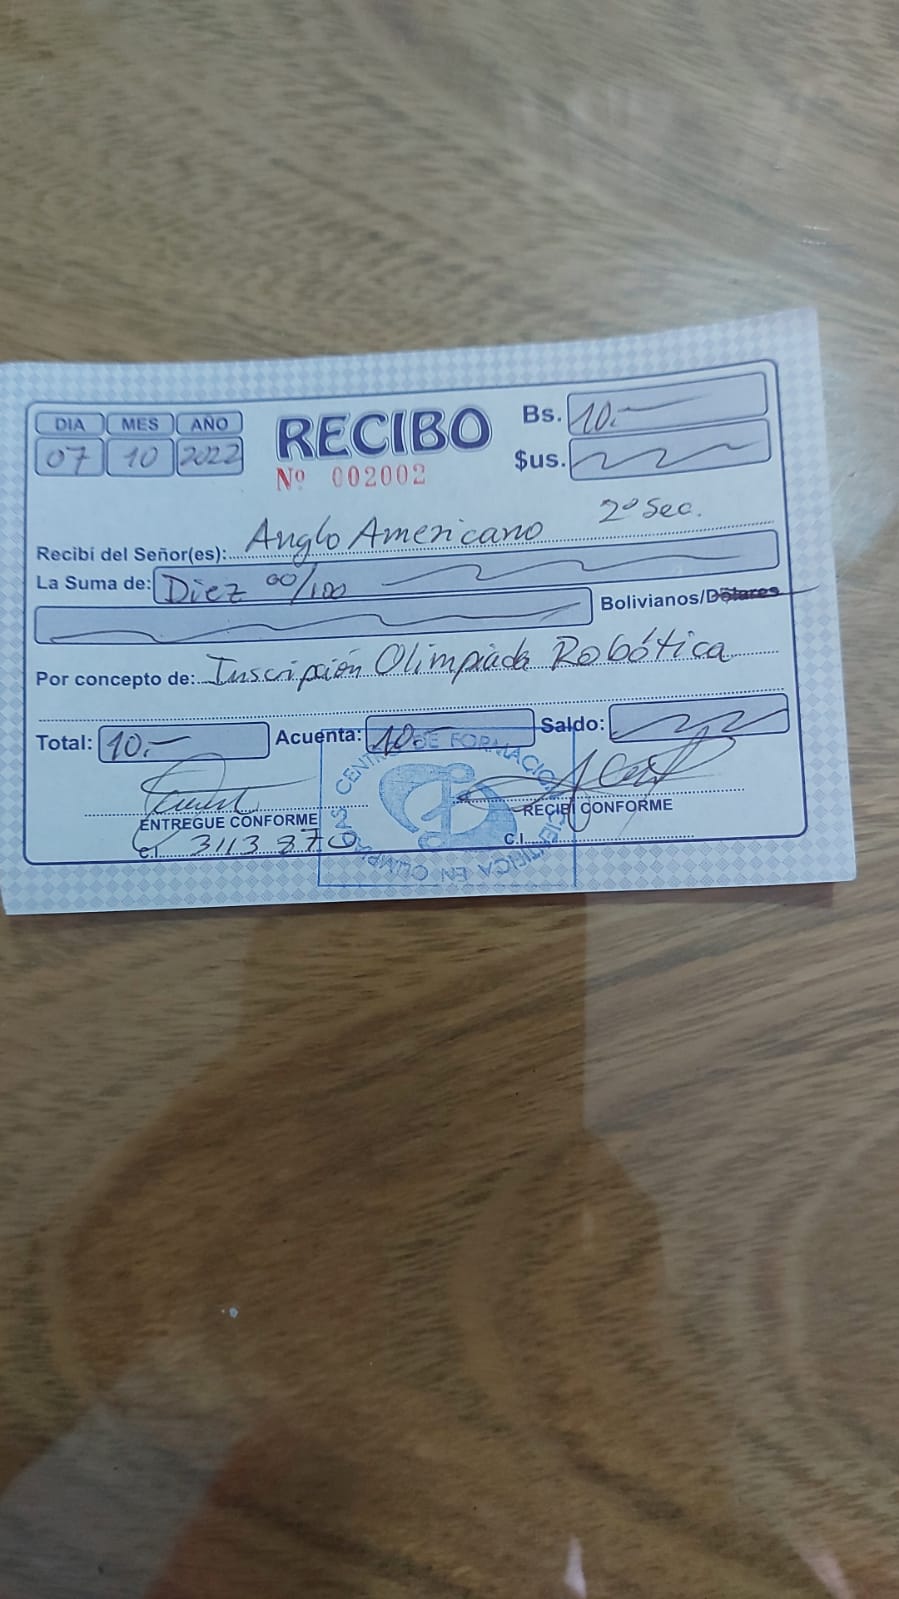 DIA MES AÑO
07 10 2022
RECIBO
Nº 002002
Bs. 10.-
$us.
Recibí del Señor(es): Anglo Americano 2º Sec.
La Suma de: Diez 00/100
Bolivianos/Dólares
Por concepto de: Inscripción Olimpiada Robótica
Total: 10.- Acuenta: 10.- Saldo:
ENTREGUE CONFORME RECIBI CONFORME
C.I. 3113870 C.I.
CENTRO DE FORMACION CIENTIFICA EN OLIMPIADAS